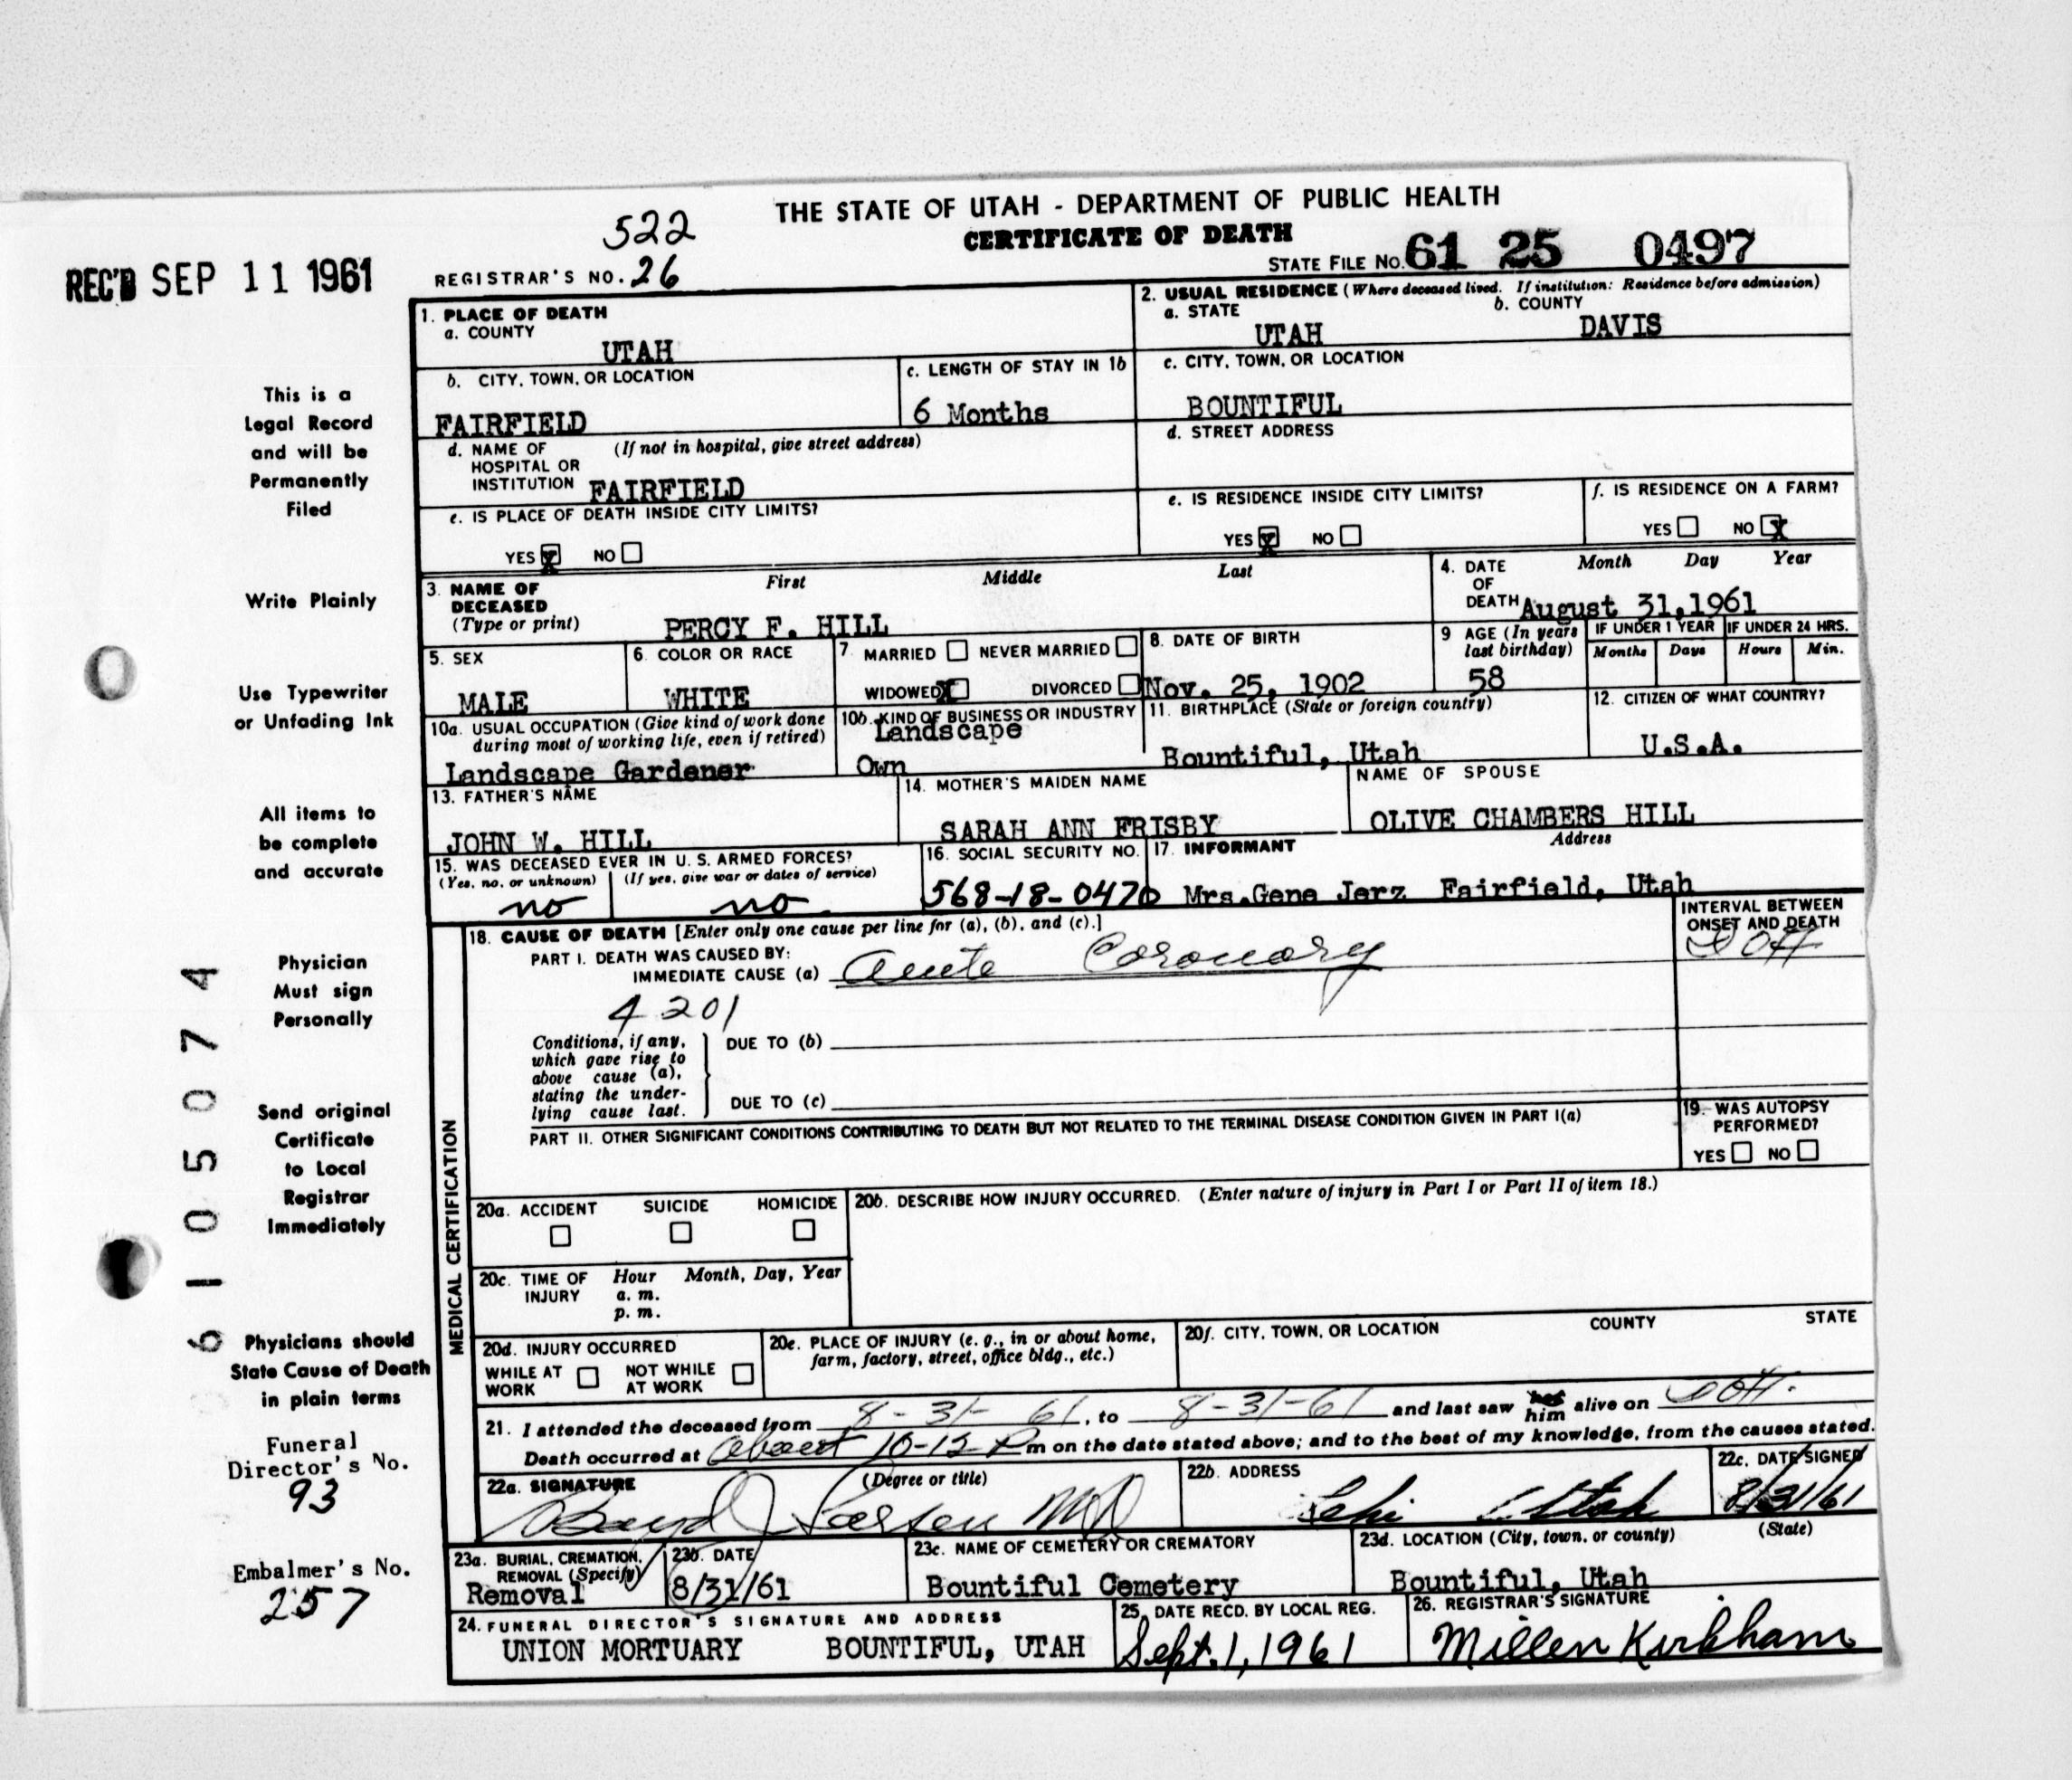 THE STATE OF UTAH - DEPARTMENT OF PUBLIC HEALTH
522
CERTIFICATE OF DEATH
REC'D SEP 11 1961
REGISTRAR'S NO. 26
STATE FILE NO. 61 25 0497
1. PLACE OF DEATH
a. COUNTY
UTAH
2. USUAL RESIDENCE (Where deceased lived. If institution: Residence before admission)
a. STATE
UTAH
b. COUNTY
DAVIS
b. CITY, TOWN, OR LOCATION
FAIRFIELD
c. LENGTH OF STAY IN 1b
6 Months
c. CITY, TOWN, OR LOCATION
BOUNTIFUL
d. NAME OF (If not in hospital, give street address)
HOSPITAL OR
INSTITUTION FAIRFIELD
d. STREET ADDRESS
e. IS PLACE OF DEATH INSIDE CITY LIMITS?
YES X NO
e. IS RESIDENCE INSIDE CITY LIMITS?
YES X NO
f. IS RESIDENCE ON A FARM?
YES NO X
3. NAME OF
DECEASED
(Type or print)
First Middle Last
PERCY F. HILL
4. DATE
OF
DEATH
Month Day Year
August 31,1961
5. SEX
MALE
6. COLOR OR RACE
WHITE
7. MARRIED NEVER MARRIED
WIDOWED X DIVORCED
8. DATE OF BIRTH
Nov. 25, 1902
9 AGE (In years
last birthday)
58
IF UNDER 1 YEAR
Months Days
IF UNDER 24 HRS.
Hours Min.
10a. USUAL OCCUPATION (Give kind of work done
during most of working life, even if retired)
Landscape Gardener
10b. KIND OF BUSINESS OR INDUSTRY
Landscape
Own
11. BIRTHPLACE (State or foreign country)
Bountiful, Utah
12. CITIZEN OF WHAT COUNTRY?
U.S.A.
13. FATHER'S NAME
JOHN W. HILL
14. MOTHER'S MAIDEN NAME
SARAH ANN FRISBY
NAME OF SPOUSE
OLIVE CHAMBERS HILL
15. WAS DECEASED EVER IN U. S. ARMED FORCES?
(Yes, no, or unknown) (If yes, give war or dates of service)
no no
16. SOCIAL SECURITY NO.
568-18-0470
17. INFORMANT Address
Mrs.Gene Jerz Fairfield, Utah
MEDICAL CERTIFICATION
18. CAUSE OF DEATH [Enter only one cause per line for (a), (b), and (c).]
PART I. DEATH WAS CAUSED BY:
IMMEDIATE CAUSE (a) Acute Coronary
4201
INTERVAL BETWEEN
ONSET AND DEATH
Conditions, if any,
which gave rise to
above cause (a),
stating the under-
lying cause last.
DUE TO (b)
DUE TO (c)
PART II. OTHER SIGNIFICANT CONDITIONS CONTRIBUTING TO DEATH BUT NOT RELATED TO THE TERMINAL DISEASE CONDITION GIVEN IN PART I(a)
19. WAS AUTOPSY
PERFORMED?
YES NO
20a. ACCIDENT SUICIDE HOMICIDE
20b. DESCRIBE HOW INJURY OCCURRED. (Enter nature of injury in Part I or Part II of item 18.)
20c. TIME OF Hour Month, Day, Year
INJURY a. m.
p. m.
20d. INJURY OCCURRED
WHILE AT NOT WHILE
WORK AT WORK
20e. PLACE OF INJURY (e. g., in or about home,
farm, factory, street, office bldg., etc.)
20f. CITY, TOWN, OR LOCATION COUNTY STATE
21. I attended the deceased from 8-31-61, to 8-31-61 and last saw him alive on
Death occurred at about 10-12 P m on the date stated above; and to the best of my knowledge, from the causes stated.
22a. SIGNATURE (Degree or title)
Boyd J Larsen MD
22b. ADDRESS
Lehi Utah
22c. DATE SIGNED
8/31/61
23a. BURIAL, CREMATION,
REMOVAL (Specify)
Removal
23b. DATE
8/31/61
23c. NAME OF CEMETERY OR CREMATORY
Bountiful Cemetery
23d. LOCATION (City, town, or county) (State)
Bountiful, Utah
24. FUNERAL DIRECTOR'S SIGNATURE AND ADDRESS
UNION MORTUARY BOUNTIFUL, UTAH
25. DATE RECD. BY LOCAL REG.
Sept. 1, 1961
26. REGISTRAR'S SIGNATURE
Millen Kirkham
This is a
Legal Record
and will be
Permanently
Filed
Write Plainly
Use Typewriter
or Unfading Ink
All items to
be complete
and accurate
Physician
Must sign
Personally
Send original
Certificate
to Local
Registrar
Immediately
Physicians should
State Cause of Death
in plain terms
Funeral
Director's No.
93
Embalmer's No.
257
6105074